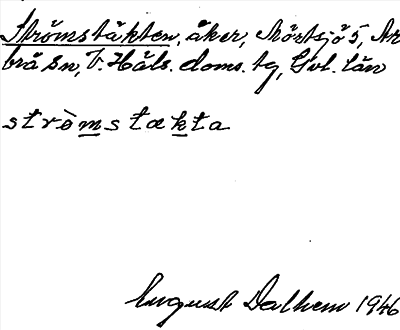 Strömstäkten, åker, Mörtsjö 5, Ar
brå Sn, V. Häls. doms. tg, Gvl. län
strömstækta
August Dalhem 1946